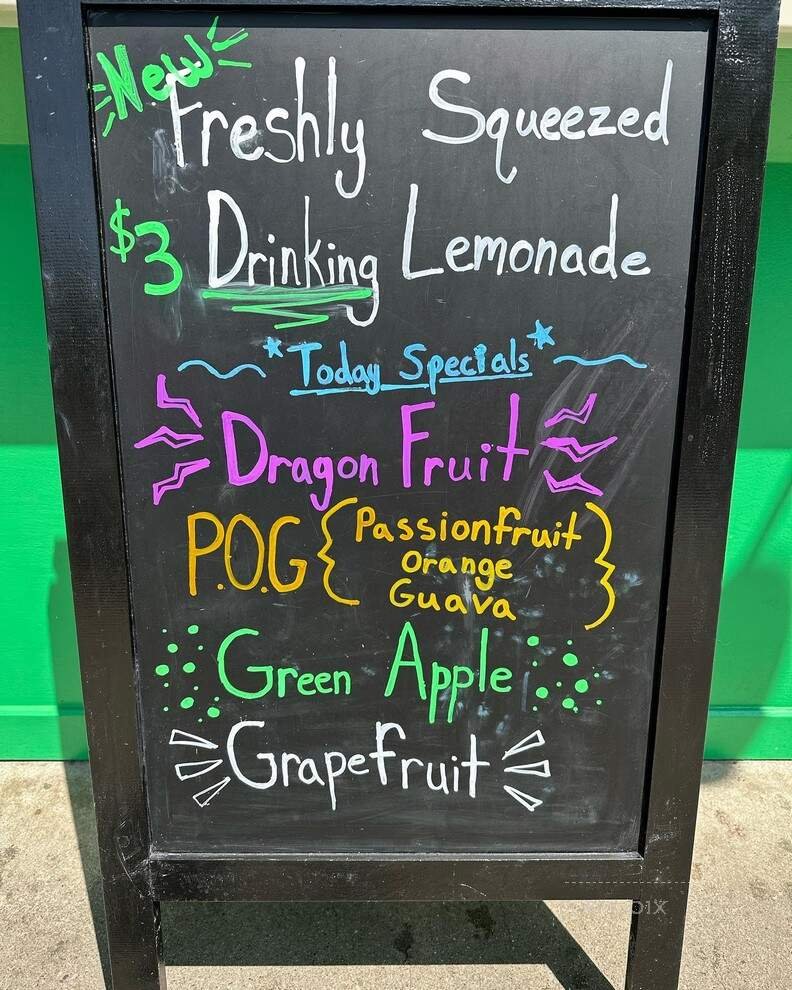 New
Freshly Squeezed
$3 Drinking Lemonade
*Today Specials*
Dragon Fruit
P.O.G { Passionfruit
Orange
Guava }
Green Apple
Grapefruit